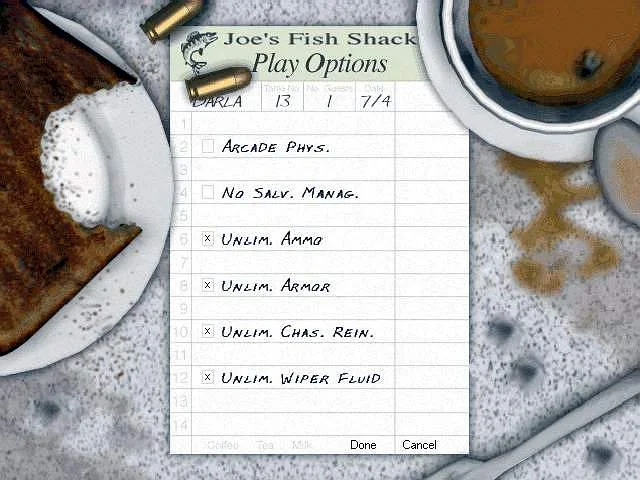 Joe's Fish Shack
Play Options
Table No. No. Guests Date
DARLA 13 1 7/4
1
2 ARCADE PHYS.
3
4 NO SALV. MANAG.
5
6 x UNLIM. AMMO
7
8 x UNLIM. ARMOR
9
10 x UNLIM. CHAS. REIN.
11
12 x UNLIM. WIPER FLUID
13
14
Coffee Tea Milk Done Cancel